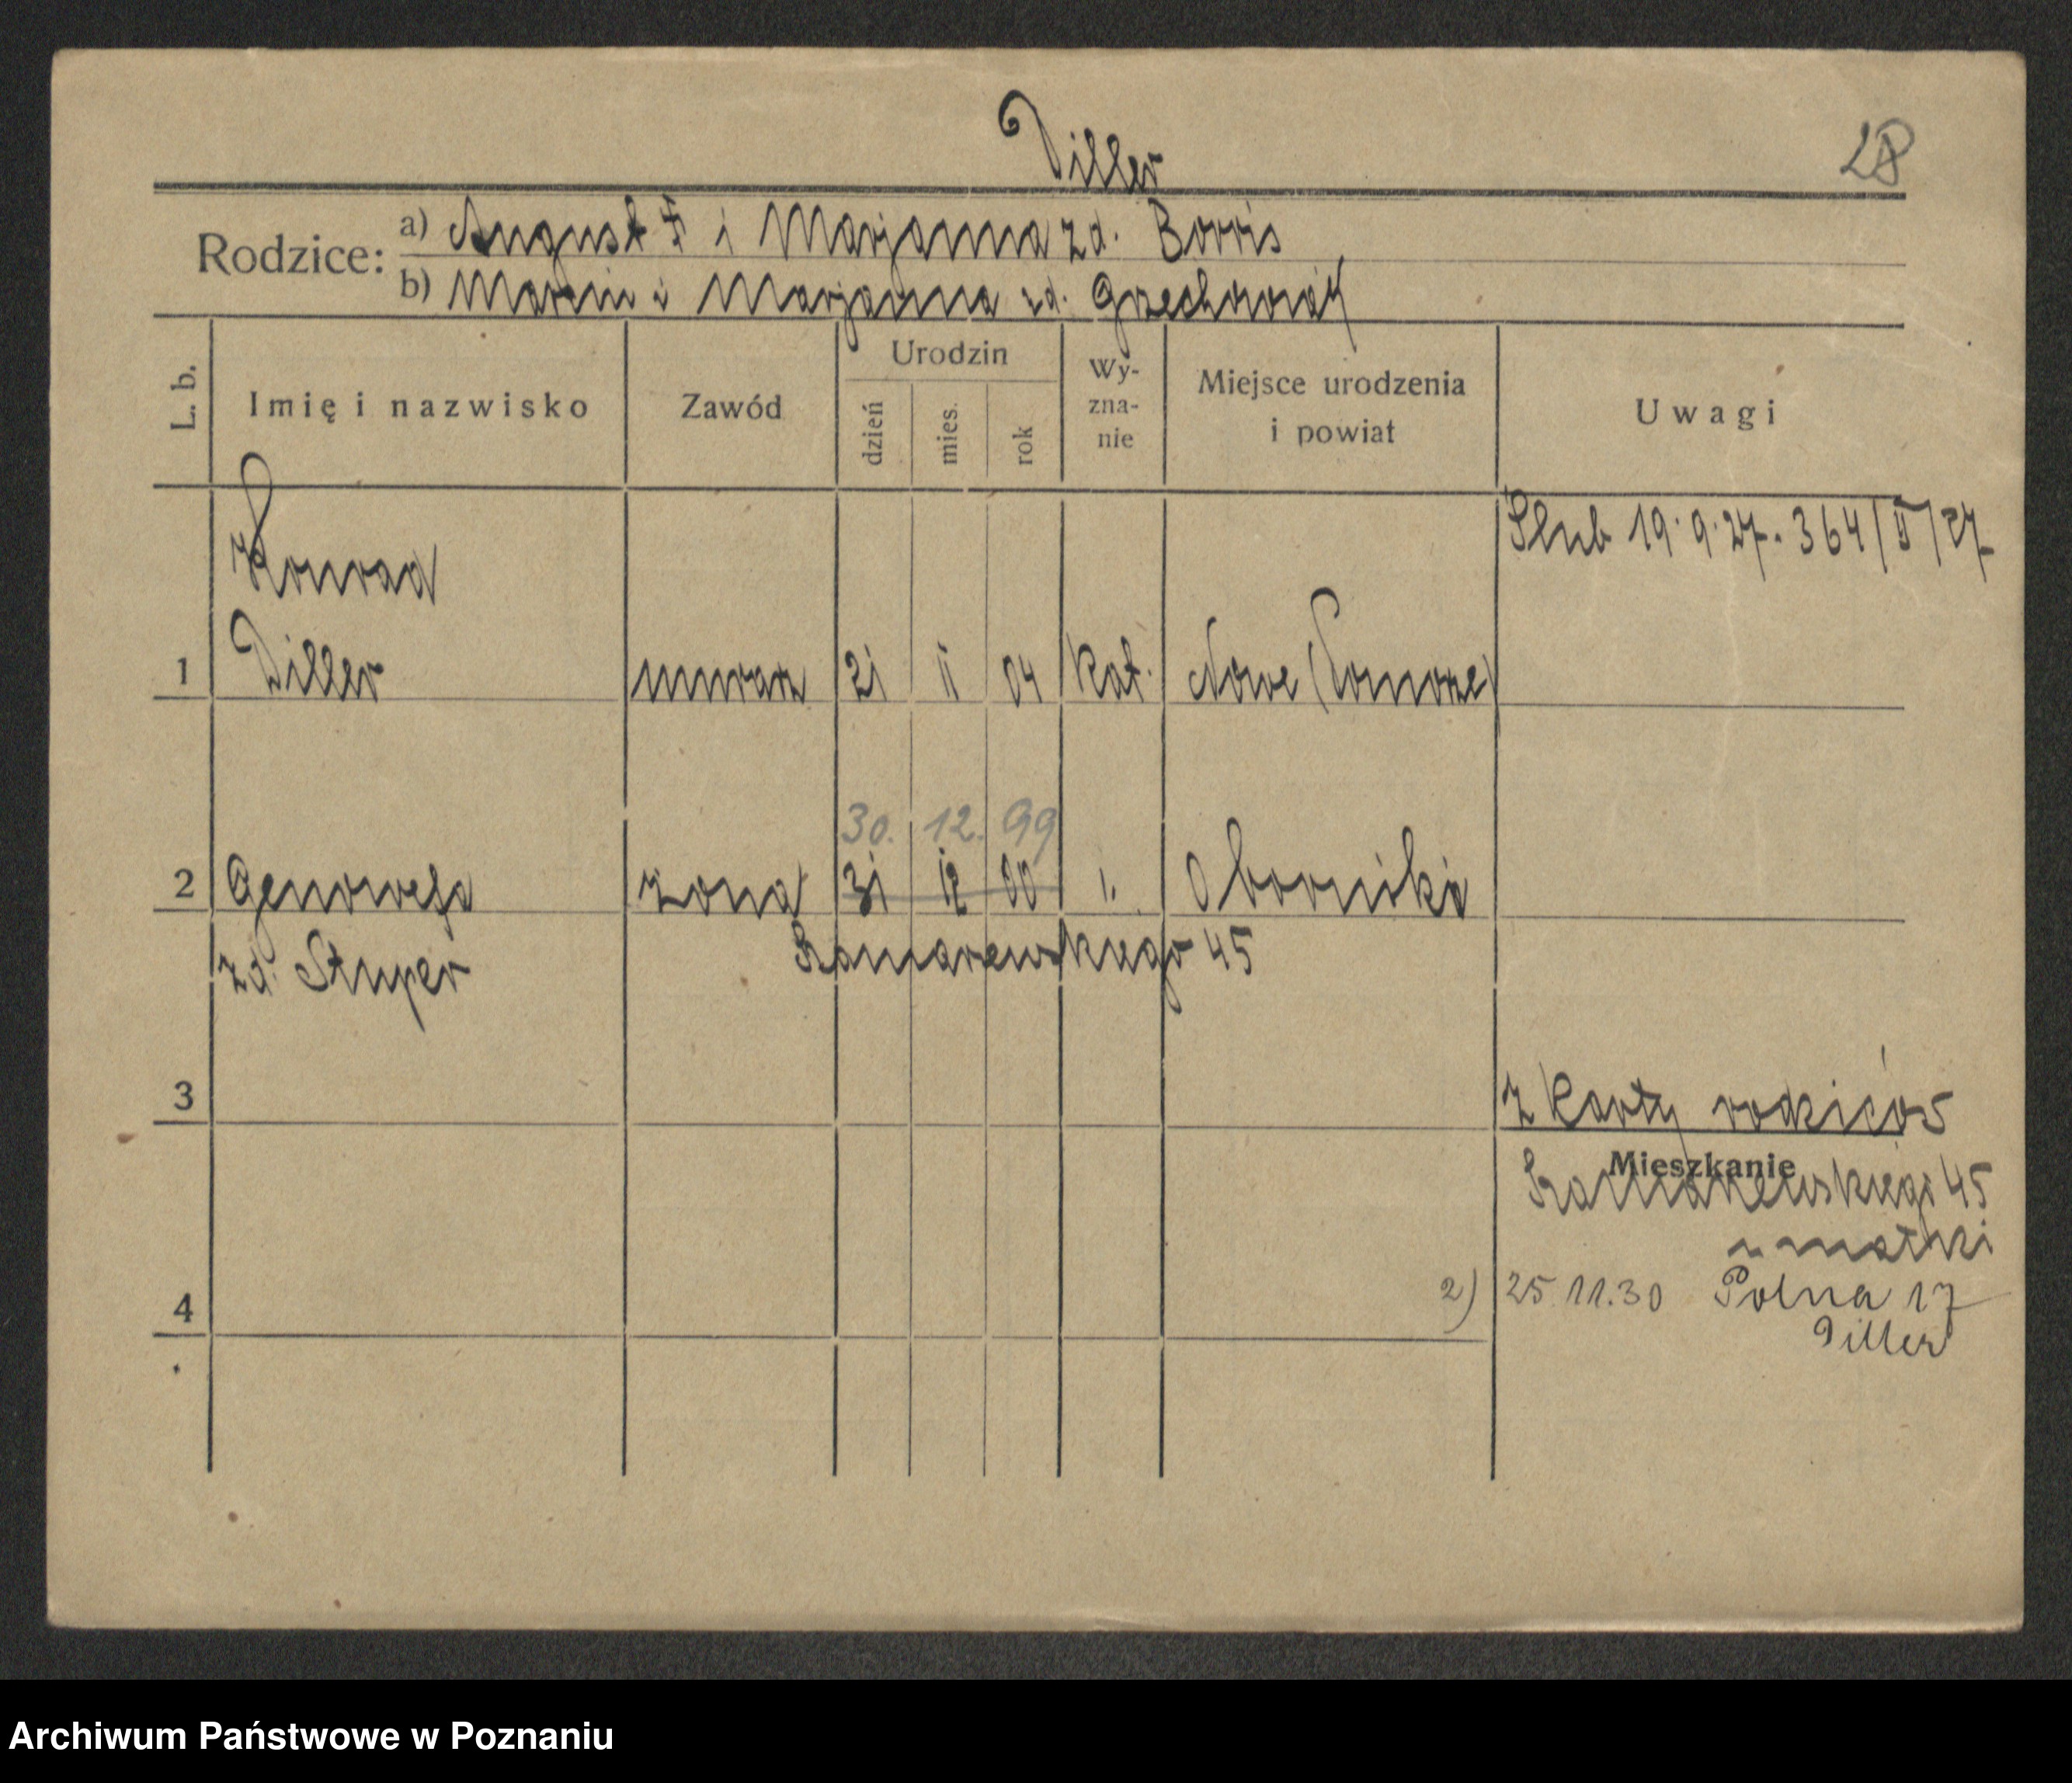 Diller
28
Rodzice:
a) August † i Marjanna zd. Borris
b) Marcin i Marjanna zd. Grzechowiak
L. b.
Imię i nazwisko
Zawód
Urodzin
dzień
mies.
rok
Wy-
zna-
nie
Miejsce urodzenia
i powiat
Uwagi
Ślub 19.9.27. 364/II/27
Konrad
1 Diller murarz 21 11 04 kat. Nowe (Pomorze)
30. 12. 99
2 Genowefa żona 31 12 00 ". Oborniki
zd. Stuper
Szamarzewskiego 45
3
z karty rodziców
Mieszkanie
Szamarzewskiego 45
u matki
4
2) 25.11.30 Polna 17
Diller
Archiwum Państwowe w Poznaniu